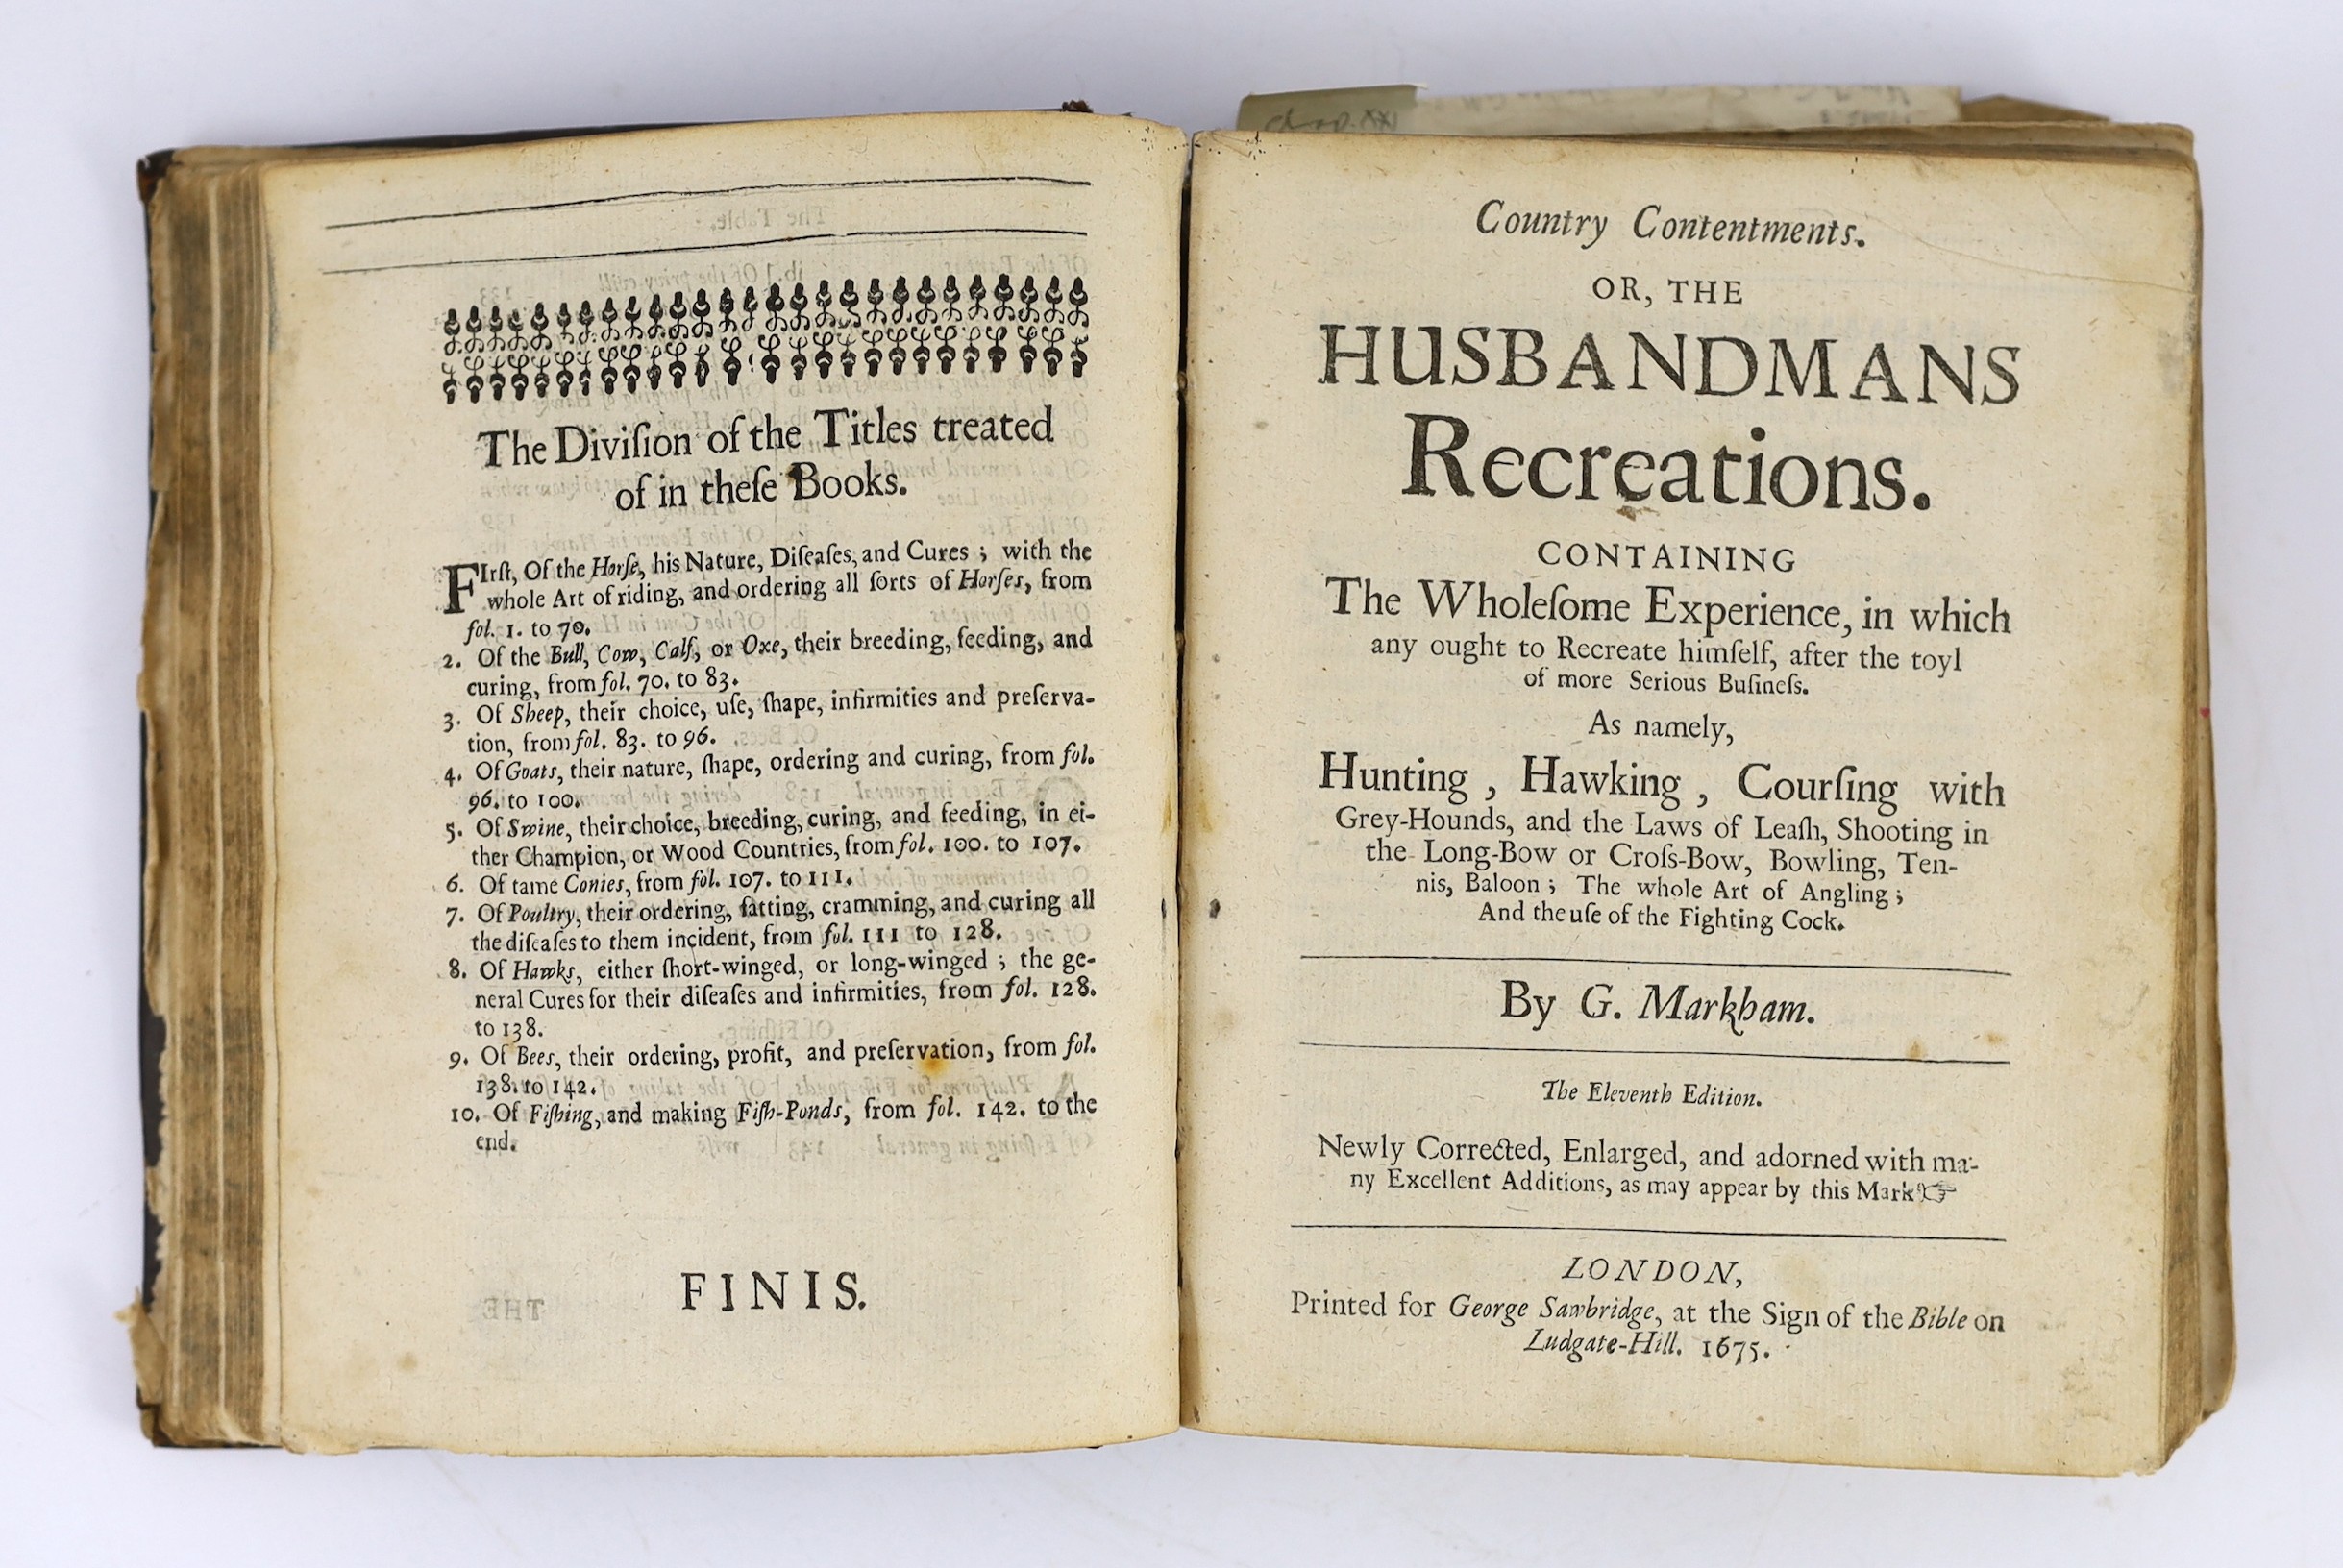 The Diviſion of the Titles treated
of in theſe Books.
FIrſt, Of the Horſe, his Nature, Diſeaſes, and Cures; with the
whole Art of riding, and ordering all ſorts of Horſes, from
fol. 1. to 70.
2. Of the Bull, Cow, Calf, or Oxe, their breeding, feeding, and
curing, from fol. 70. to 83.
3. Of Sheep, their choice, uſe, ſhape, infirmities and preſerva-
tion, from fol. 83. to 96.
4. Of Goats, their nature, ſhape, ordering and curing, from fol.
96. to 100.
5. Of Swine, their choice, breeding, curing, and feeding, in ei-
ther Champion, or Wood Countries, from fol. 100. to 107.
6. Of tame Conies, from fol. 107. to 111.
7. Of Poultry, their ordering, fatting, cramming, and curing all
the diſeaſes to them incident, from fol. 111 to 128.
8. Of Hawks, either ſhort-winged, or long-winged; the ge-
neral Cures for their diſeaſes and infirmities, from fol. 128.
to 138.
9. Of Bees, their ordering, profit, and preſervation, from fol.
138. to 142.
10. Of Fiſhing, and making Fiſh-Ponds, from fol. 142. to the
end.
FINIS.
Country Contentments.
OR, THE
HUSBANDMANS
Recreations.
CONTAINING
The Wholeſome Experience, in which
any ought to Recreate himſelf, after the toyl
of more Serious Buſineſs.
As namely,
Hunting, Hawking, Courſing with
Grey-Hounds, and the Laws of Leaſh, Shooting in
the Long-Bow or Croſs-Bow, Bowling, Ten-
nis, Baloon; The whole Art of Angling;
And the uſe of the Fighting Cock.
By G. Markham.
The Eleventh Edition.
Newly Corrected, Enlarged, and adorned with ma-
ny Excellent Additions, as may appear by this Mark ☞
LONDON,
Printed for George Sawbridge, at the Sign of the Bible on
Ludgate-Hill. 1675.